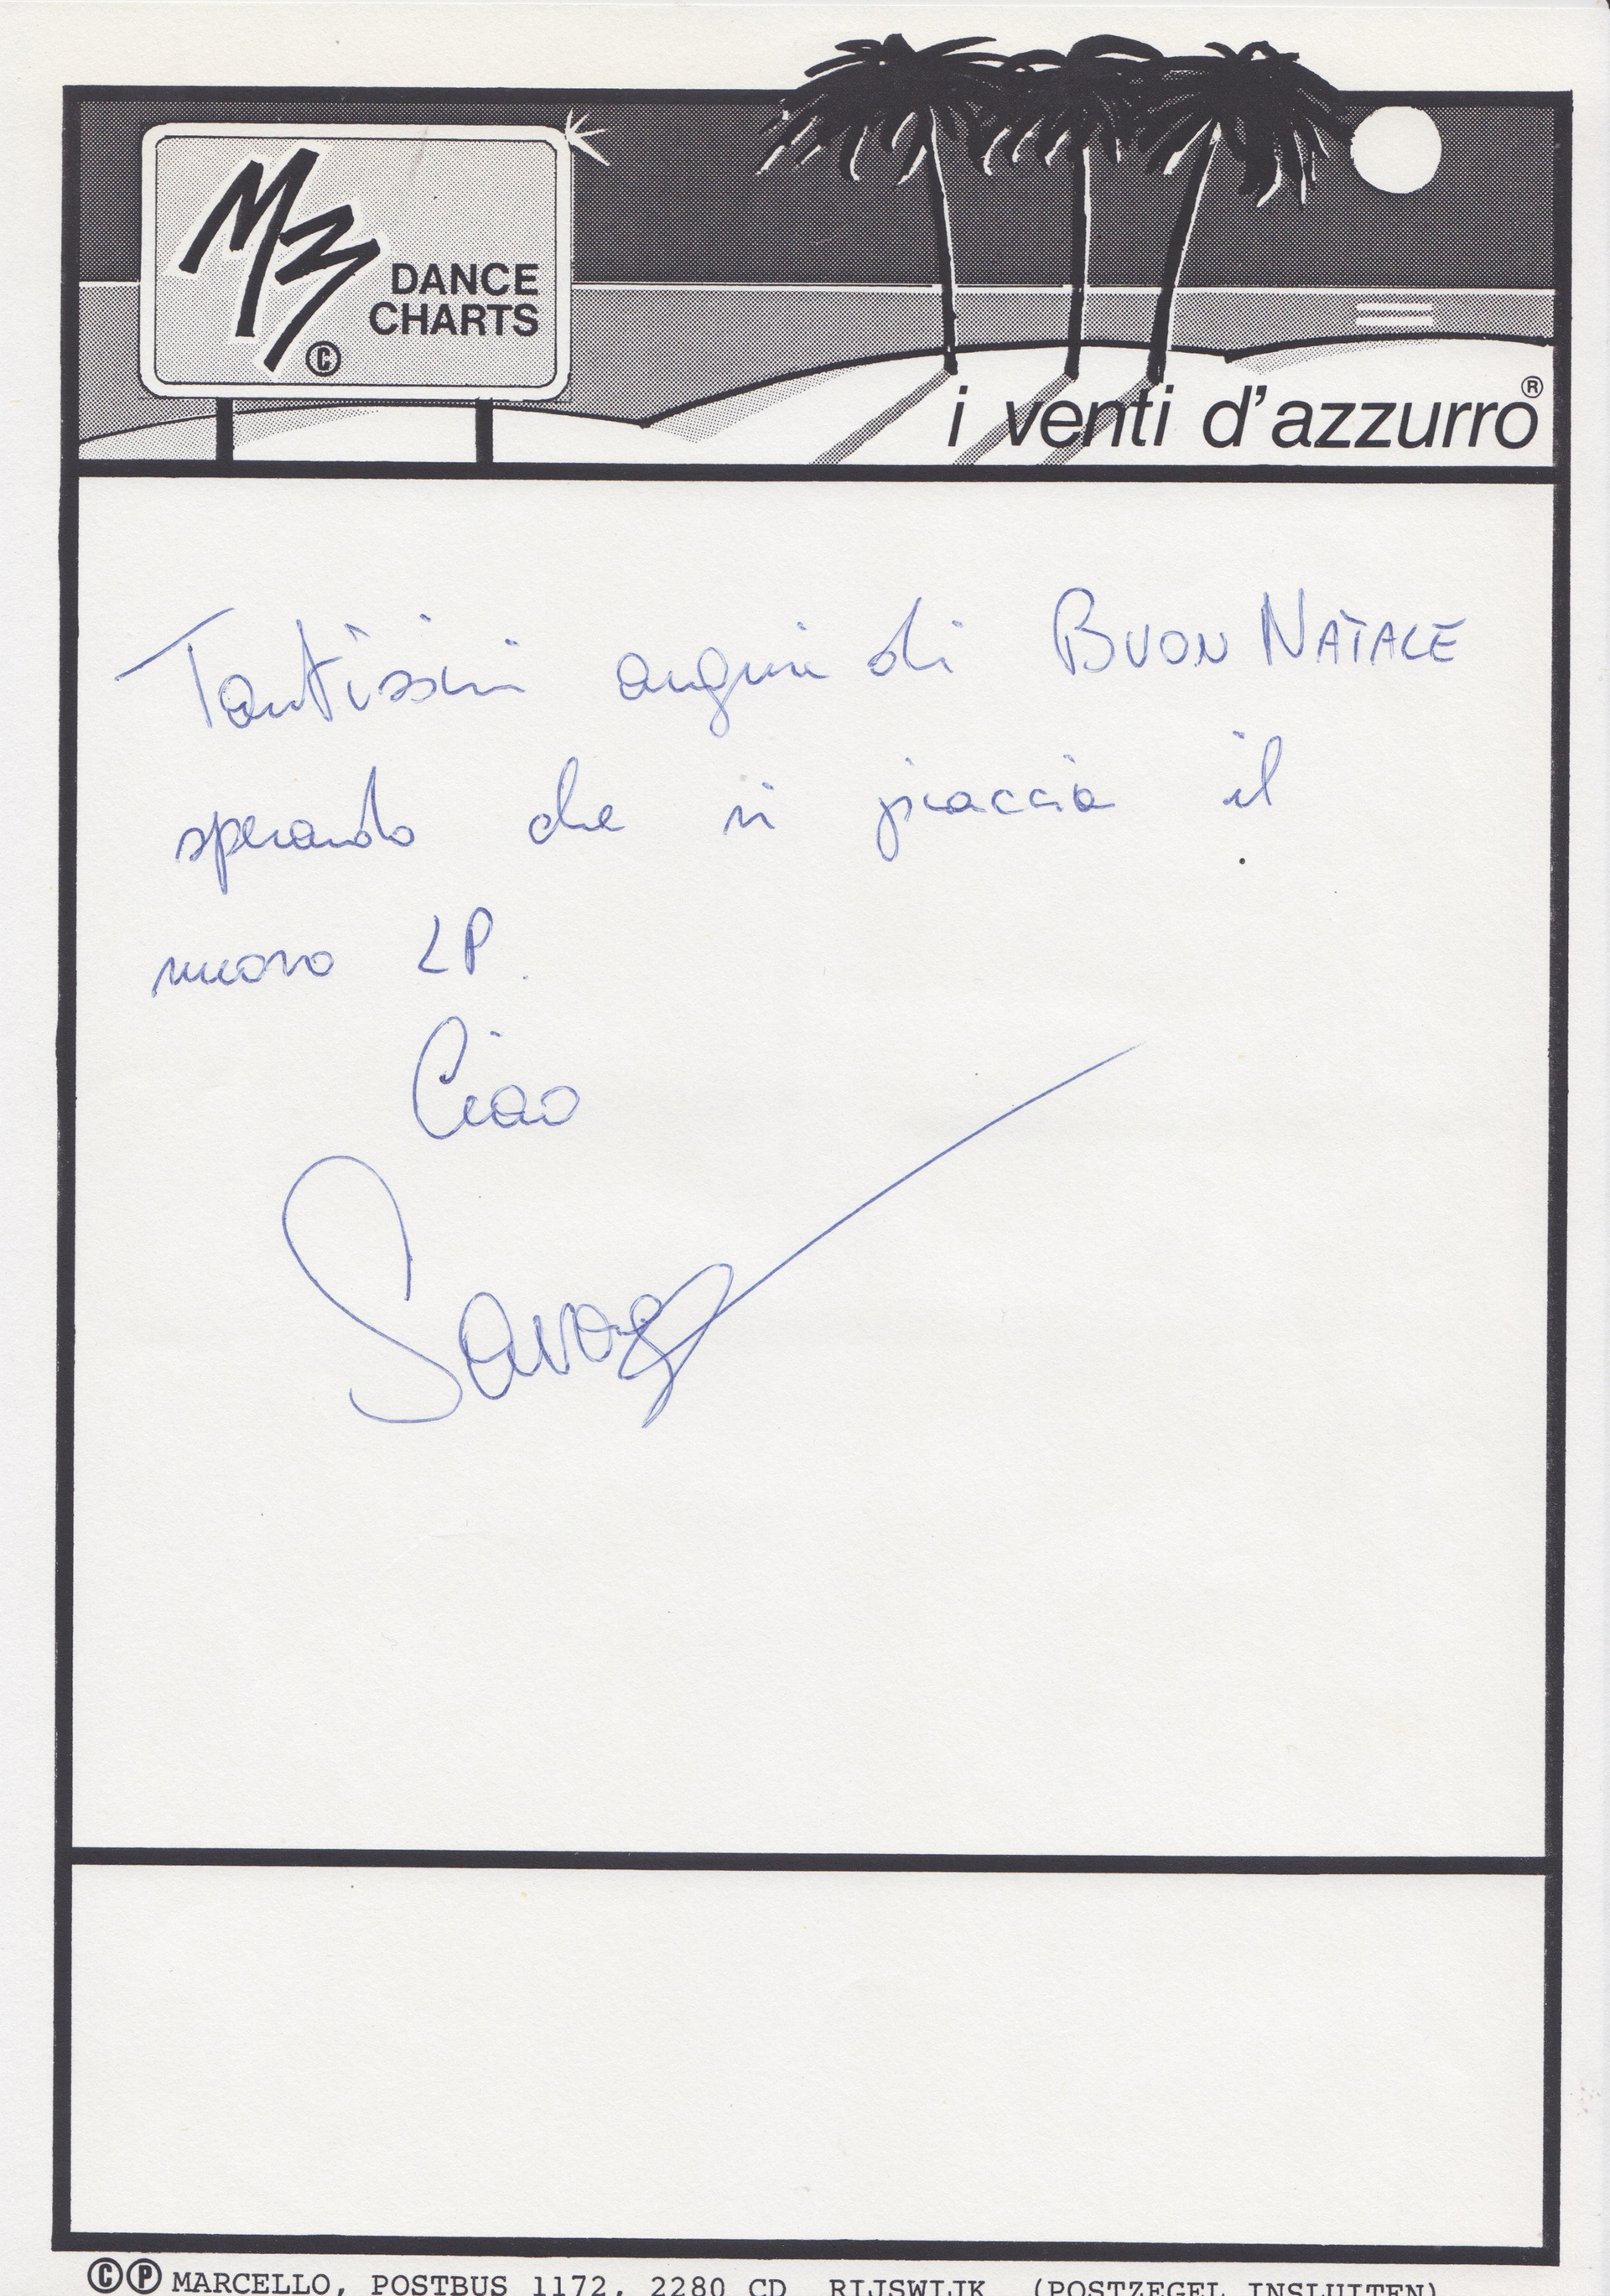 M3
DANCE
CHARTS
©
i venti d'azzurro®
Tantissimi auguri di BUON NATALE
sperando che vi piaccia il
nuovo LP.
Ciao
Savage
©Ⓟ MARCELLO, POSTBUS 1172, 2280 CD RIJSWIJK (POSTZEGEL INSLUITEN)